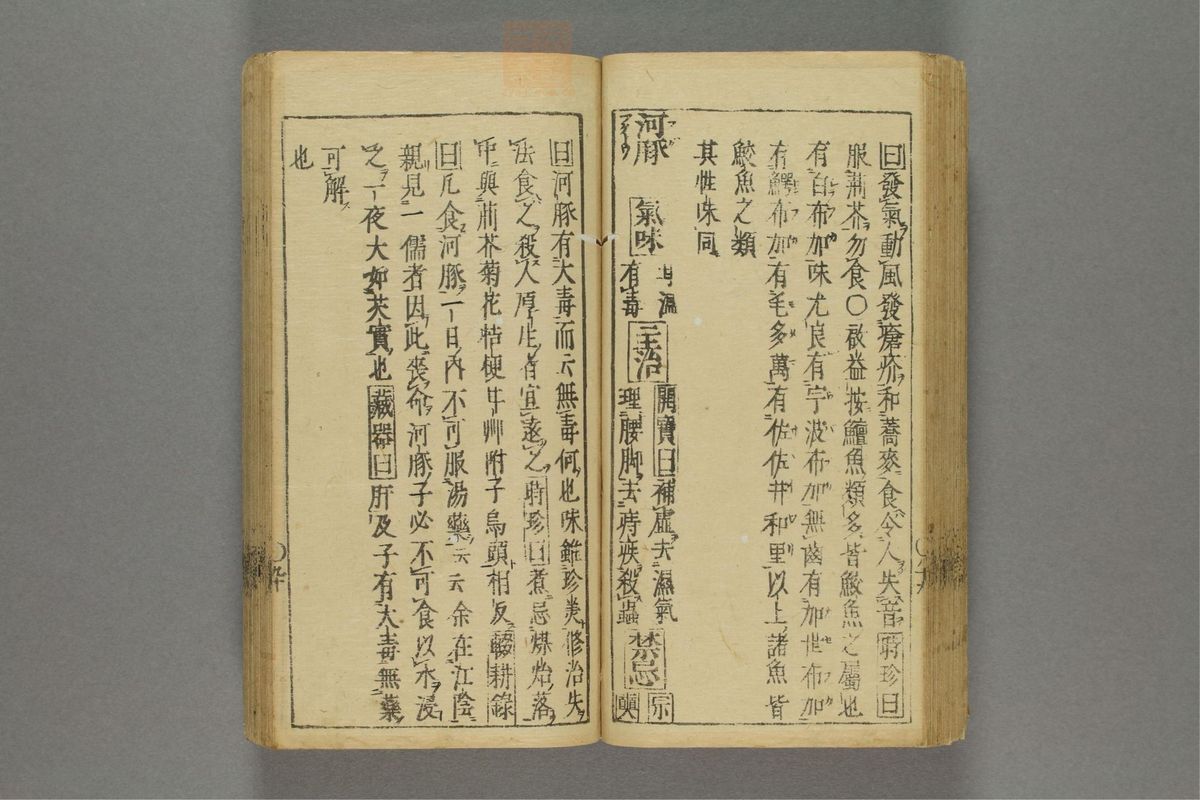 曰發氣動風發瘡疥和蕎麥食令人失音時珍曰
服荊芥勿食〇啟益按鱣魚類多皆鮫魚之屬也
有白布加味尤良有宇波布加無齒有加世布加
有鰐布加有毛多萬有佐佐井和里以上諸魚皆
鮫魚之類
其性味同
河豚 氣味 甘溫有毒 主治 開寶曰補虛去濕氣理腰脚去痔疾殺蟲 禁忌 宗奭
曰河豚有大毒而云無毒何也味雖珍美修治失
法食之殺人厚生者宜遠之時珍曰煮忌煤炲落
中與荊芥菊花桔梗甘艸附子烏頭相反輟耕錄
曰凡食河豚一日內不可服湯藥云云余在江陰
親見一儒者因此喪命河豚子必不可食以水浸
之一夜大如芡實也藏器曰肝及子有大毒無藥
可解
也